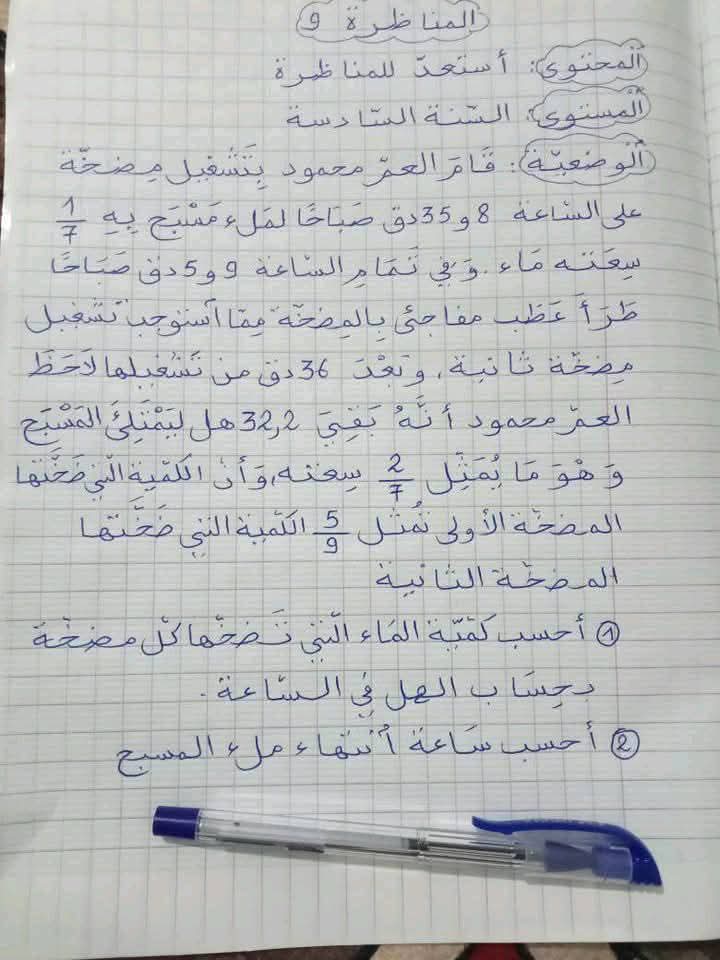 المناظرة 9
المحتوى: أستعدّ للمناظرة
المستوى: السّنة السّادسة
الوضعيّة: قَامَ العمّ محمود بِتَشْغيل مِضخّة
على السّاعة 8 و35دق صَبَاحًا لمَلء مَسْبَح بِهِ 1/7
سِعَته مَاء. وَ في تَمَامِ السّاعة 9 و5دق صَبَاحًا
طَرَأَ عَطَب مفاجئ بِالمِضخّة مِمّا اسْتوجب تشْغيل
مِضخّة ثانية، وبَعْدَ 36دق من تَشْغيلها لَاحَظَ
العمّ محمود أنَّهُ بَقِيَ 32,2هل لِيَمْتَلِئَ المَسْبَح
وَ هْوَ مَا يُمَثِّل 2/7 سِعته، وَأنّ الكمّية الّتي ضَخَّتْها
المضخّة الأولى تُمثّل 5/9 الكمّية التي ضَخَّتها
المضخّة الثّانية
① أحسب كمّيّة المَاء الّتي تَضخّها كلّ مضخّة
بحِسَاب الهل في السّاعة.
② أحسب سَاعة اُنتهاء ملء المسبح